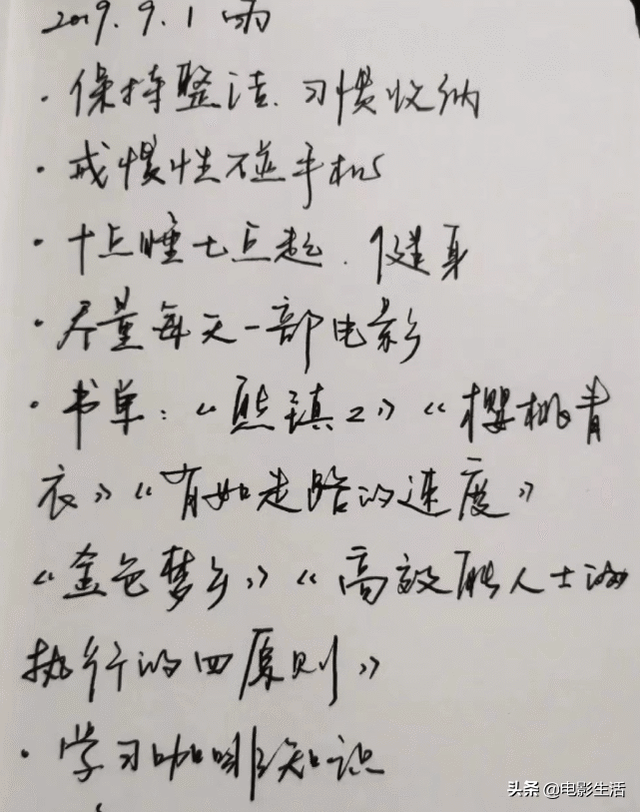 2019.9.1 雨
· 保持整洁、习惯收纳
· 戒惯性碰手机
· 十点睡七点起、健身
· 尽量每天一部电影
· 书单：《熊镇2》《樱桃青
衣》《有如走路的速度》
《金色梦乡》《高效能人士的
执行的四原则》
· 学习咖啡知识
头条 @电影生活